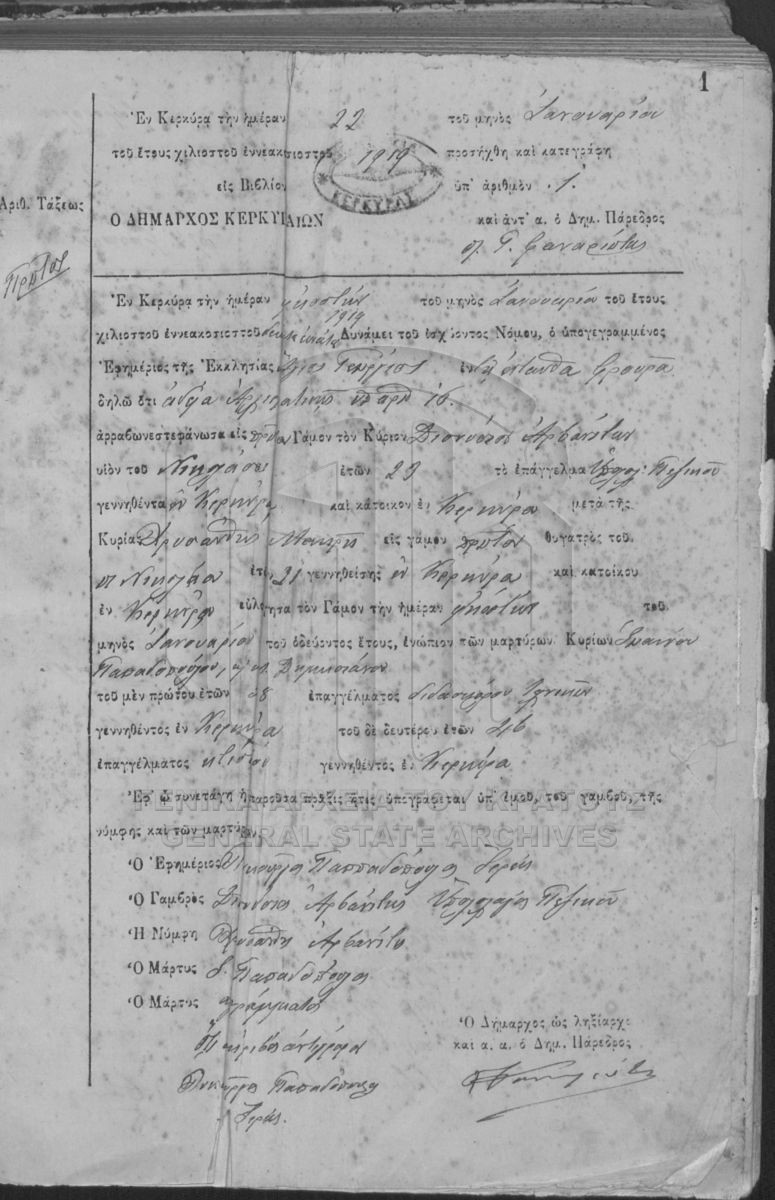 1
Ἐν Κερκύρᾳ τὴν ἡμέραν 22 τοῦ μηνὸς Ἰανουαρίου
τοῦ ἔτους χιλιοστοῦ ἐννεακοσιοστοῦ 1919 προσήχθη καὶ κατεγράφη
εἰς Βιβλίον ὑπ' ἀριθμὸν 1.
ΚΕΡΚΥΡΑΣ
Ἀριθ. Τάξεως
Ο ΔΗΜΑΡΧΟΣ ΚΕΡΚΥΡΑΙΩΝ καὶ ἀντ' α. ὁ Δημ. Πάρεδρος
Πρῶτος
Ἐν Κερκύρᾳ τὴν ἡμέραν εἰκοστὴν τοῦ μηνὸς Ἰανουαρίου τοῦ ἔτους
1919
χιλιοστοῦ ἐννεακοσιοστοῦ Δυνάμει τοῦ ἰσχύοντος Νόμου, ὁ ὑπογεγραμμένος
Ἐφημέριος τῆς Ἐκκλησίας Ἅγιος Γεώργιος
δηλῶ ὅτι ἀδείᾳ
ἀρραβωνεστεφάνωσα εἰς πρῶτον Γάμον τὸν Κύριον Διονύσιον Ἀρβανίτην
υἱὸν τοῦ Νικολάου ἐτῶν 29 τὸ ἐπάγγελμα Πεζικοῦ
γεννηθέντα ἐν Κερκύρᾳ καὶ κάτοικον ἐν Κερκύρᾳ μετὰ τῆς
Κυρίας Χρυσάνθης Μακρῆ εἰς γάμον πρῶτον θυγατρὸς τοῦ
Νικολάου ἐτῶν 21 γεννηθείσης ἐν Κερκύρᾳ καὶ κατοίκου
ἐν Κερκύρᾳ εὐλόγητα τὸν Γάμον τὴν ἡμέραν εἰκοστὴν τοῦ
μηνὸς Ἰανουαρίου τοῦ ὁδεύοντος ἔτους, ἐνώπιον τῶν μαρτύρων Κυρίων Ἰωάννου
Παπαδοπούλου,
τοῦ μὲν πρώτου ἐτῶν 28 ἐπαγγέλματος διδασκάλου
γεννηθέντος ἐν Κερκύρᾳ τοῦ δὲ δευτέρου ἐτῶν 26
ἐπαγγέλματος κτίστου γεννηθέντος ἐν Κερκύρᾳ
Ἐφ' ᾧ συνετάγη ἡ παροῦσα πρᾶξις ἥτις ὑπογράφεται ὑπ' ἐμοῦ, τοῦ γαμβροῦ, τῆς
νύμφης καὶ τῶν μαρτύρων
ΓΕΝΙΚΑ ΑΡΧΕΙΑ ΤΟΥ ΚΡΑΤΟΥΣ
GENERAL STATE ARCHIVES
Ὁ Ἐφημέριος Παπαδόπουλος Ἱερεύς
Ὁ Γαμβρὸς Διονύσιος Ἀρβανίτης Ὑπολοχαγὸς Πεζικοῦ
Ἡ Νύμφη Χρυσάνθη Ἀρβανίτου
Ὁ Μάρτυς Ι. Παπαδόπουλος
Ὁ Μάρτυς ἀγράμματος
Ὁ Δήμαρχος ὡς ληξίαρχ.
Ὅτι ἀκριβὲς ἀντίγραφον
καὶ α. α. ὁ Δημ. Πάρεδρος
Παπαδόπουλος
Ἱερεύς.